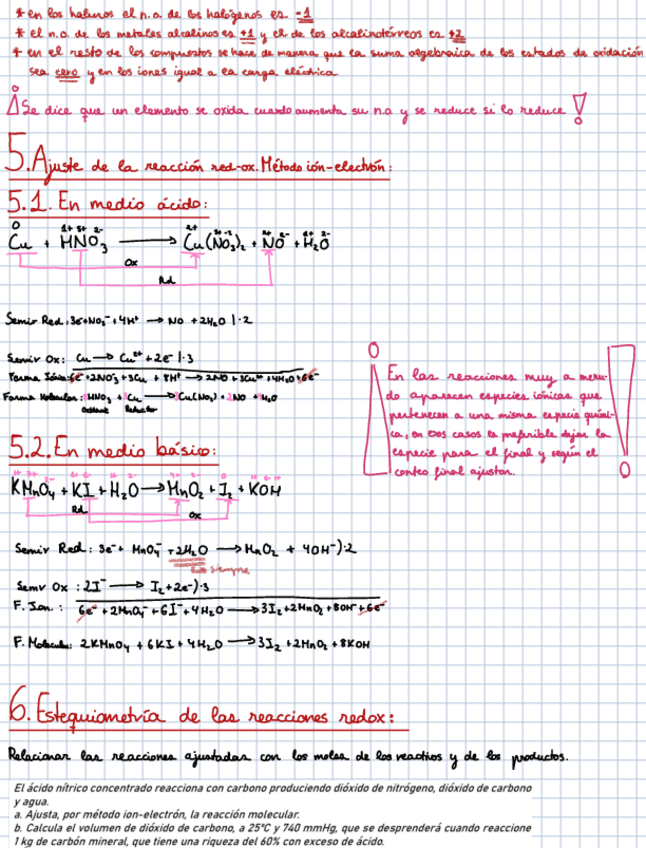 * en los haluros el n.o. de los halógenos es -1
* el n.o. de los metales alcalinos es +1 y el de los alcalinotérreos es +2
* en el resto de los compuestos se hace de manera que la suma algebraica de los estados de oxidación
sea cero y en los iones igual a la carga eléctrica
¡Se dice que un elemento se oxida cuando aumenta su n.o y se reduce si lo reduce!
5. Ajuste de la reacción red-ox. Método ión-electrón:
5.1. En medio ácido:
0 1+ 5+ 2- 2+ 5+ 2- 2+ 2- 1+ 2-
Cu + HNO3 → Cu(NO3)2 + NO + H2O
Ox
Rd
Semir Red: 3e⁻ + NO3⁻ + 4H⁺ → NO + 2H2O | · 2
Semir Ox: Cu → Cu²⁺ + 2e⁻ | · 3
Forma Iónica: 6e⁻ + 2NO3⁻ + 3Cu + 8H⁺ → 2NO + 3Cu²⁺ + 4H2O + 6e⁻
Forma Molecular: HNO3 + Cu → 3Cu(NO3) + 2NO + 4H2O
Oxidante Reductor
¡En las reacciones muy a menu-
do aparecen especies iónicas que
pertenecen a una misma especie quími-
ca, en esos casos es preferible dejar la
especie para el final y según el
conteo final ajustar.!
5.2. En medio básico:
KMnO4 + KI + H2O → MnO2 + I2 + KOH
Rd
Ox
Semir Red: 3e⁻ + MnO4⁻ + 2H2O → MnO2 + 4OH⁻) · 2
siempre
Semr Ox: 2I⁻ → I2 + 2e⁻) · 3
F. Ion.: 6e⁻ + 2MnO4⁻ + 6I⁻ + 4H2O → 3I2 + 2MnO2 + 8OH⁻ + 6e⁻
F. Molecular: 2KMnO4 + 6KI + 4H2O → 3I2 + 2MnO2 + 8KOH
6. Estequiometría de las reacciones redox:
Relacionar las reacciones ajustadas con los moles de los reactivos y de los productos.
El ácido nítrico concentrado reacciona con carbono produciendo dióxido de nitrógeno, dióxido de carbono
y agua.
a. Ajusta, por método ion-electrón, la reacción molecular.
b. Calcula el volumen de dióxido de carbono, a 25°C y 740 mmHg, que se desprenderá cuando reaccione
1 kg de carbón mineral, que tiene una riqueza del 60% con exceso de ácido.